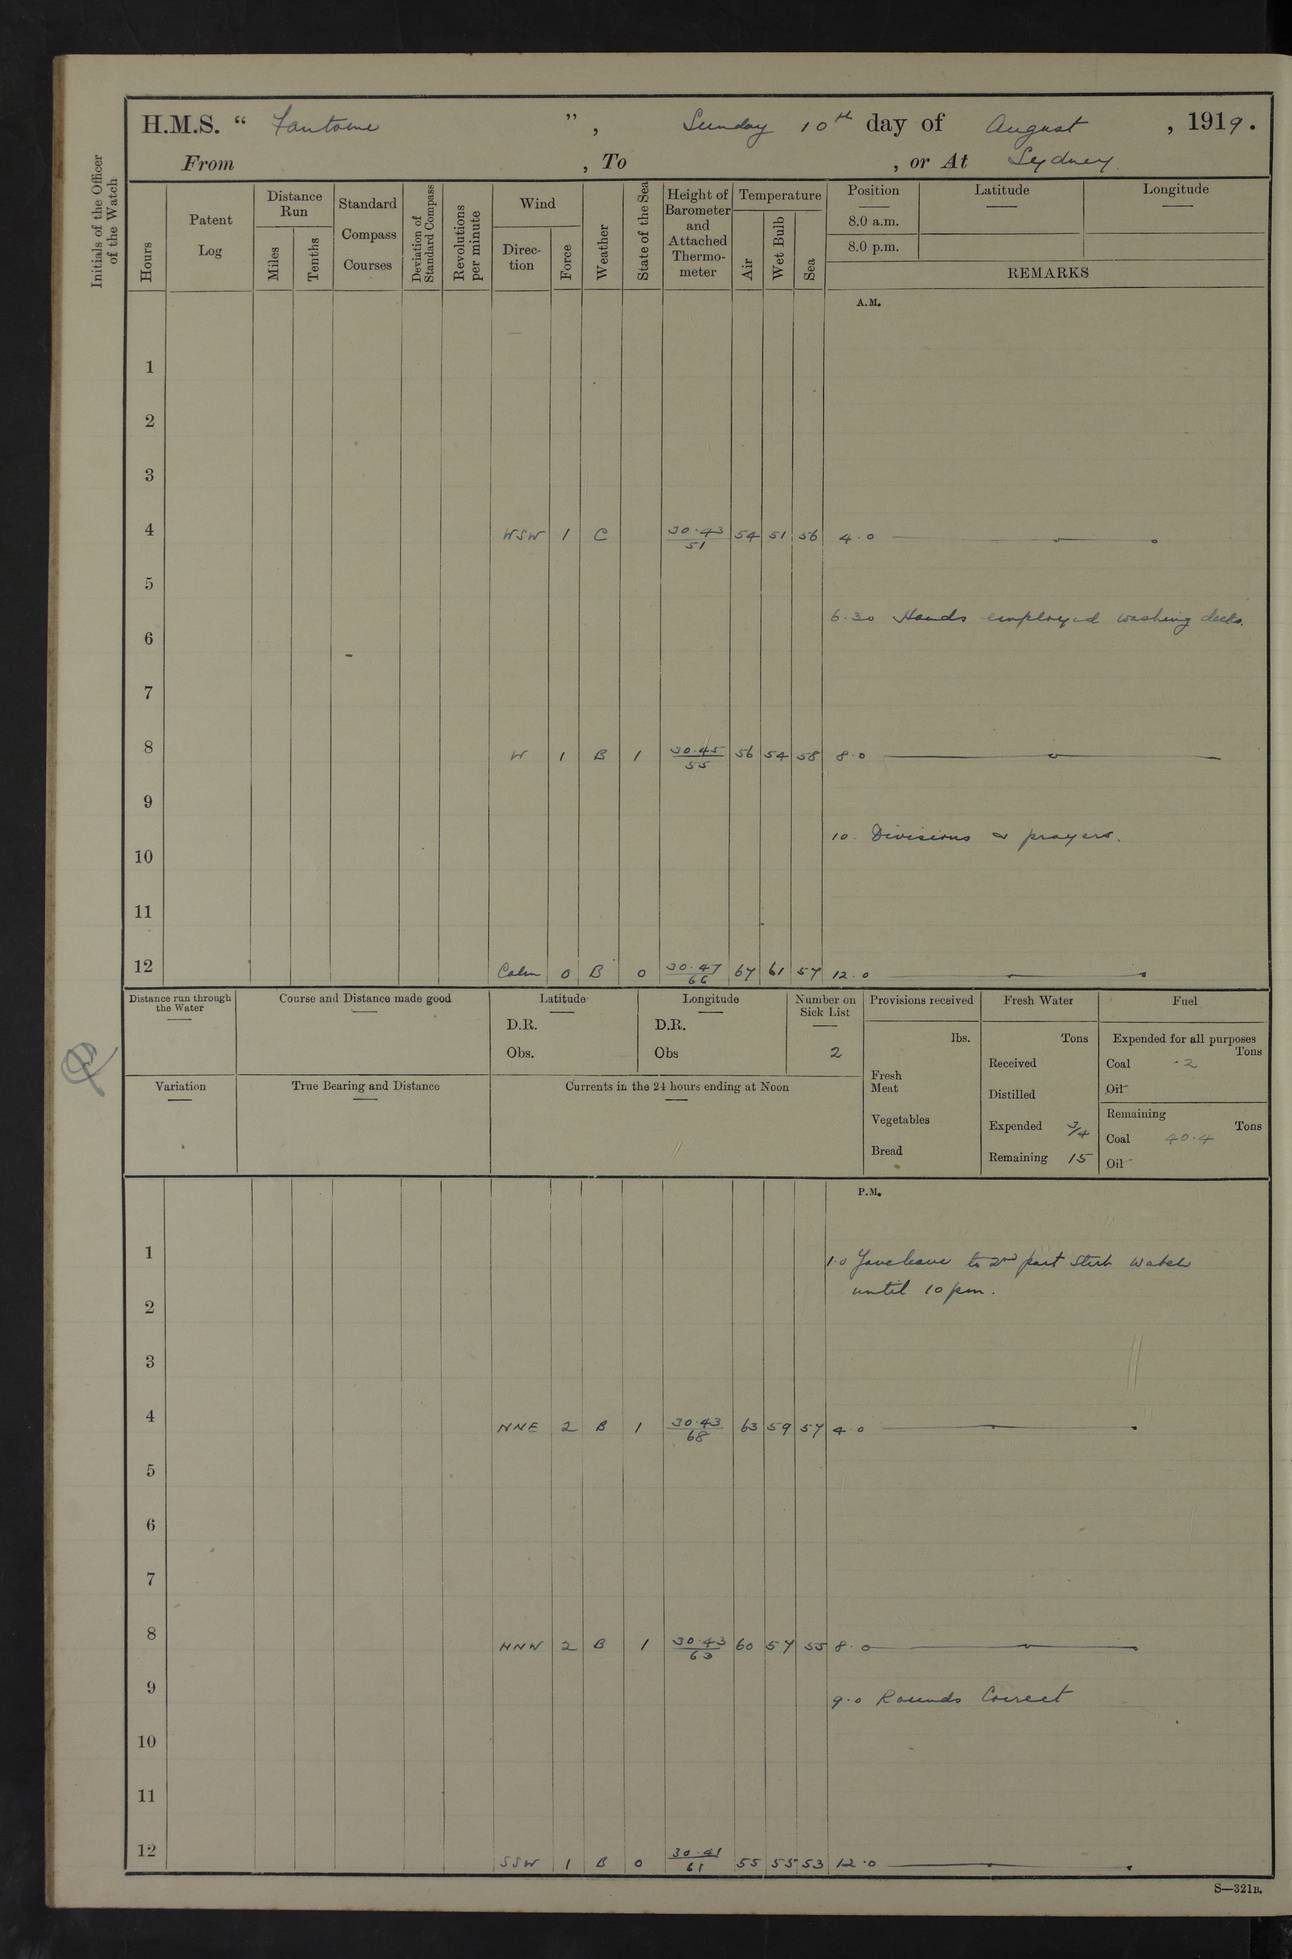 H.M.S. " Fantome ", Sunday 10th day of August, 1919.
From , To , or At Sydney
Initials of the Officer of the Watch
Hours
Patent Log
Distance Run
Miles
Tenths
Standard Compass Courses
Deviation of Standard Compass
Revolutions per minute
Wind
Direction
Force
Weather
State of the Sea
Height of Barometer and Attached Thermometer
Temperature
Air
Wet Bulb
Sea
Position
Latitude
Longitude
8.0 a.m.
8.0 p.m.
REMARKS
A.M.
1
2
3
4 WSW 1 C 30.43/51 54 51 56 4.0
5
6.30 Hands employed washing decks.
6
7
8 W 1 B 1 30.45/55 56 54 58 8.0
9
10. Divisions & prayers.
10
11
12 Calm 0 B 0 30.47/66 67 61 57 12.0
Distance run through the Water
Course and Distance made good
Latitude
D.R.
Obs.
Longitude
D.R.
Obs
Number on Sick List
2
Provisions received
lbs.
Fresh Meat
Vegetables
Bread
Fresh Water
Tons
Received
Distilled
Expended 3/4
Remaining 15
Fuel
Expended for all purposes
Tons
Coal .2
Oil
Remaining
Tons
Coal 40.4
Oil
Variation
True Bearing and Distance
Currents in the 24 hours ending at Noon
P.M.
1
1.0 Gave leave to 2nd part Stbd watch
until 10 pm.
2
3
4 NNE 2 B 1 30.43/68 63 59 57 4.0
5
6
7
8 NNW 2 B 1 30.43/63 60 57 55 8.0
9
9.0 Rounds Correct
10
11
12 SSW 1 B 0 30.41/61 55 55 53 12.0
S—321B.